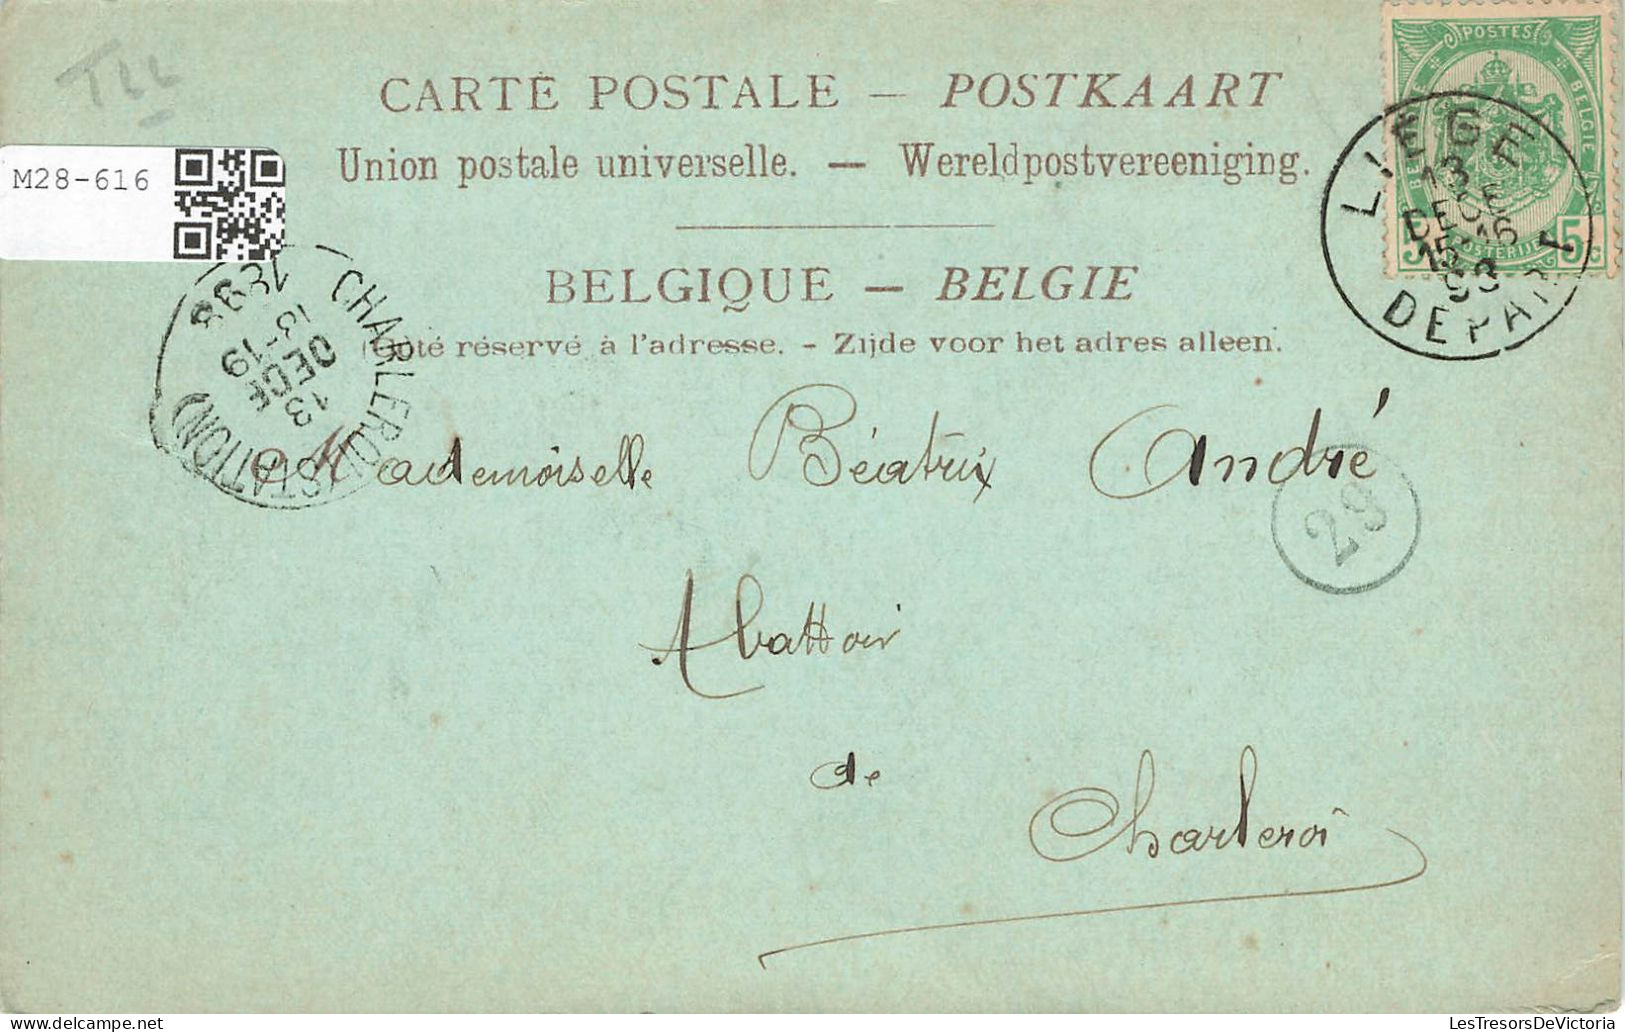 TLL
CARTE POSTALE — POSTKAART
Union postale universelle. — Wereldpostvereeniging.
M28-616
BELGIQUE — BELGIE
Côté réservé à l'adresse. - Zijde voor het adres alleen.
POSTES
BELGIQUE BELGIE
5 5c
LIEGE
13
DECE
15-16
98
DEPART
CHARLEROI (STATION)
13
DECE
13-19
98
Mademoiselle Béatrix André
29
Abattoir
de
Charleroi
LesTresorsDeVictoria